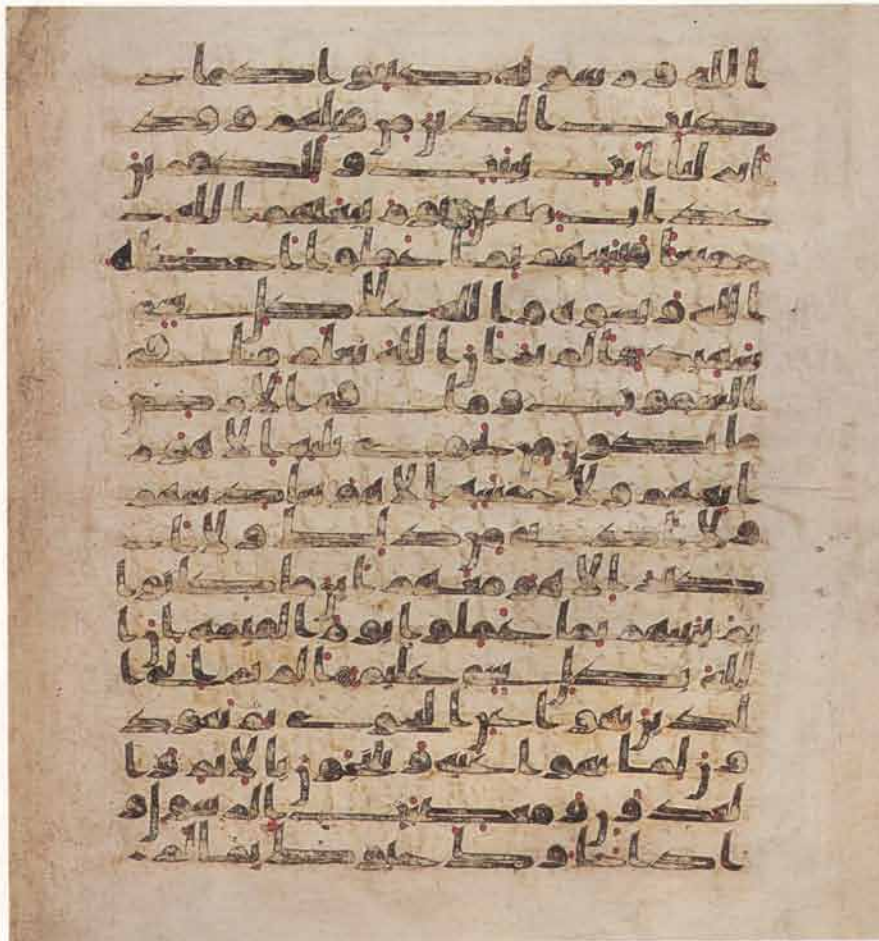 الله ورسوله كبتوا كما
كبت الذين من قبلهم وقد
انزلنا ايت بينت وللكفرين
عذاب مهين يوم يبعثهم الله
جميعا فينبئهم بما عملوا احصا
ه الله ونسوه والله على كل شي
شهيد الم تر ان الله يعلم ما في
السموت وما في الارض
ما يكون من نجوى ثلثة الا هو ر
ابعهم ولا خمسة الا هو سادسهم
ولا ادنى من ذلك ولا ا
كثر الا هو معهم اين ما كانوا ثم
ينبئهم بما عملوا يوم القيمة ان ا
لله بكل شي عليم الم تر الى ا
لذين نهوا عن النجوى ثم يعود
ون لما نهوا عنه ويتنجون بالاثم وا
لعدون ومعصيت الرسول و
اذا جاوك حيوك بما لم